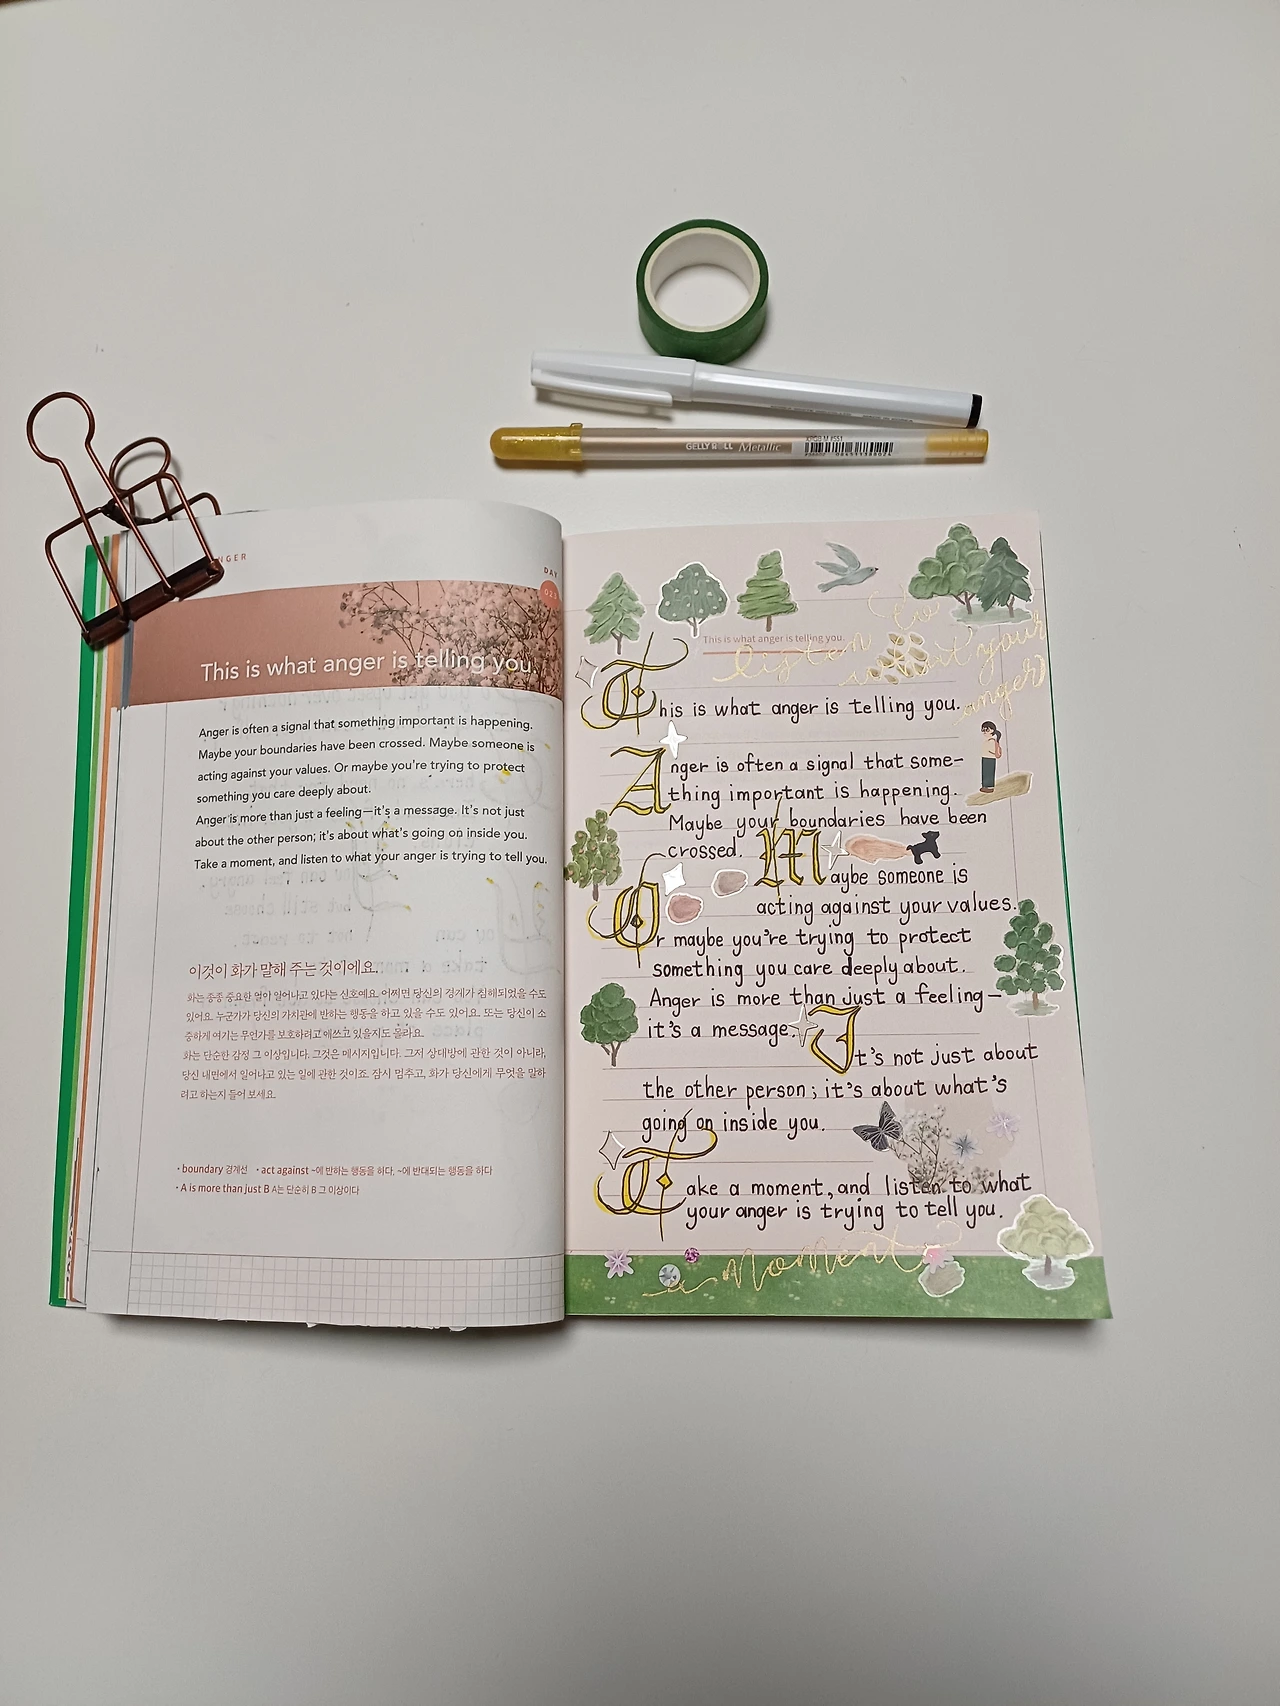 GELLY ROLL Metallic
XPGB M #551
NGER
DAY
This is what anger is telling you.
Anger is often a signal that something important is happening.
Maybe your boundaries have been crossed. Maybe someone is
acting against your values. Or maybe you're trying to protect
something you care deeply about.
Anger is more than just a feeling—it's a message. It's not just
about the other person; it's about what's going on inside you.
Take a moment, and listen to what your anger is trying to tell you.
이것이 화가 말해 주는 것이에요.
화는 종종 중요한 일이 일어나고 있다는 신호예요. 어쩌면 당신의 경계가 침해되었을 수도
있어요. 누군가가 당신의 가치관에 반하는 행동을 하고 있을 수도 있어요. 또는 당신이 소
중하게 여기는 무언가를 보호하려고 애쓰고 있을지도 몰라요.
화는 단순한 감정 그 이상입니다. 그것은 메시지입니다. 그저 상대방에 관한 것이 아니라,
당신 내면에서 일어나고 있는 일에 관한 것이죠. 잠시 멈추고, 화가 당신에게 무엇을 말하
려고 하는지 들어 보세요.
• boundary 경계선 • act against ~에 반하는 행동을 하다, ~에 반대되는 행동을 하다
• A is more than just B A는 단순히 B 그 이상이다
This is what anger is telling you.
listen to
your
anger
This is what anger is telling you.
Anger is often a signal that some-
thing important is happening.
Maybe your boundaries have been
crossed. Maybe someone is
acting against your values.
Or maybe you're trying to protect
something you care deeply about.
Anger is more than just a feeling-
it's a message. It's not just about
the other person; it's about what's
going on inside you.
Take a moment, and listen to what
your anger is trying to tell you.
a moment